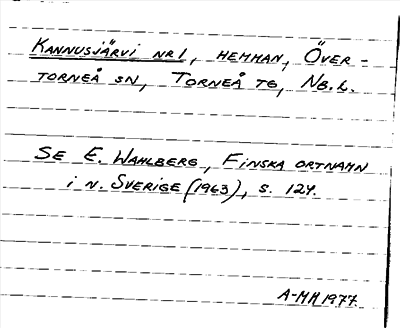 KANNUSJÄRVI NR 1, HEMMAN, ÖVER-
TORNEÅ SN, TORNEÅ TG, NB. L.
SE E. WAHLBERG, FINSKA ORTNAMN
I N. SVERIGE (1963), S. 124.
A-MH 1977